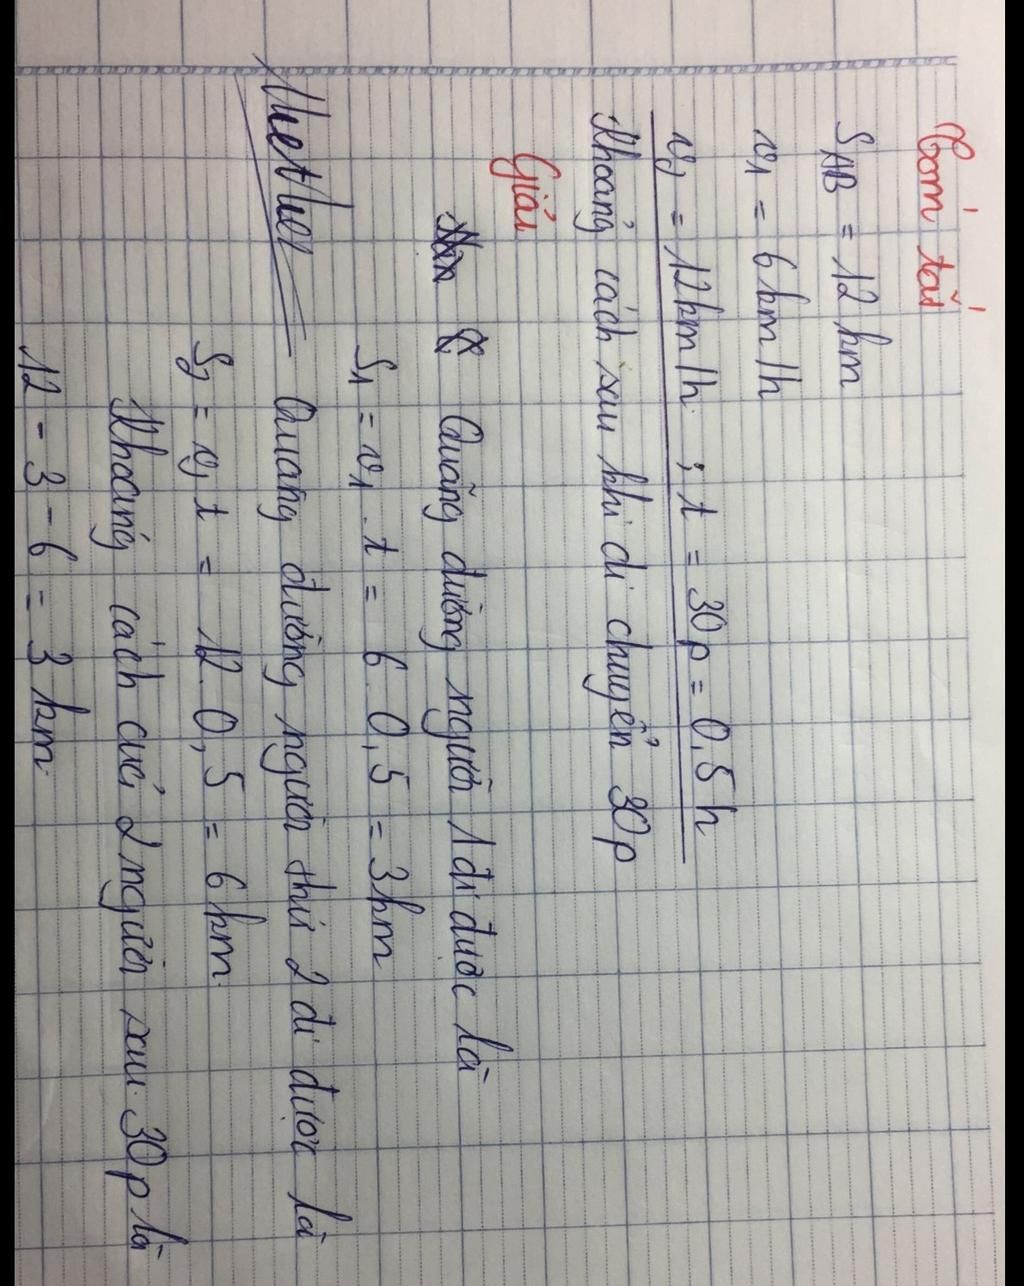 Tóm tắt
SAB = 12 km
v1 = 6km/h
v2 = 12km/h ; t = 30p = 0,5h
Khoảng cách sau khi di chuyển 30p
Giải
Quãng đường người 1 đi được là
S1 = v1 . t = 6. 0,5 = 3km
Quãng đường người thứ 2 đi được là
S2 = v2 t = 12. 0,5 = 6km.
Khoảng cách của 2 người sau 30p là
12 - 3 - 6 = 3 km.